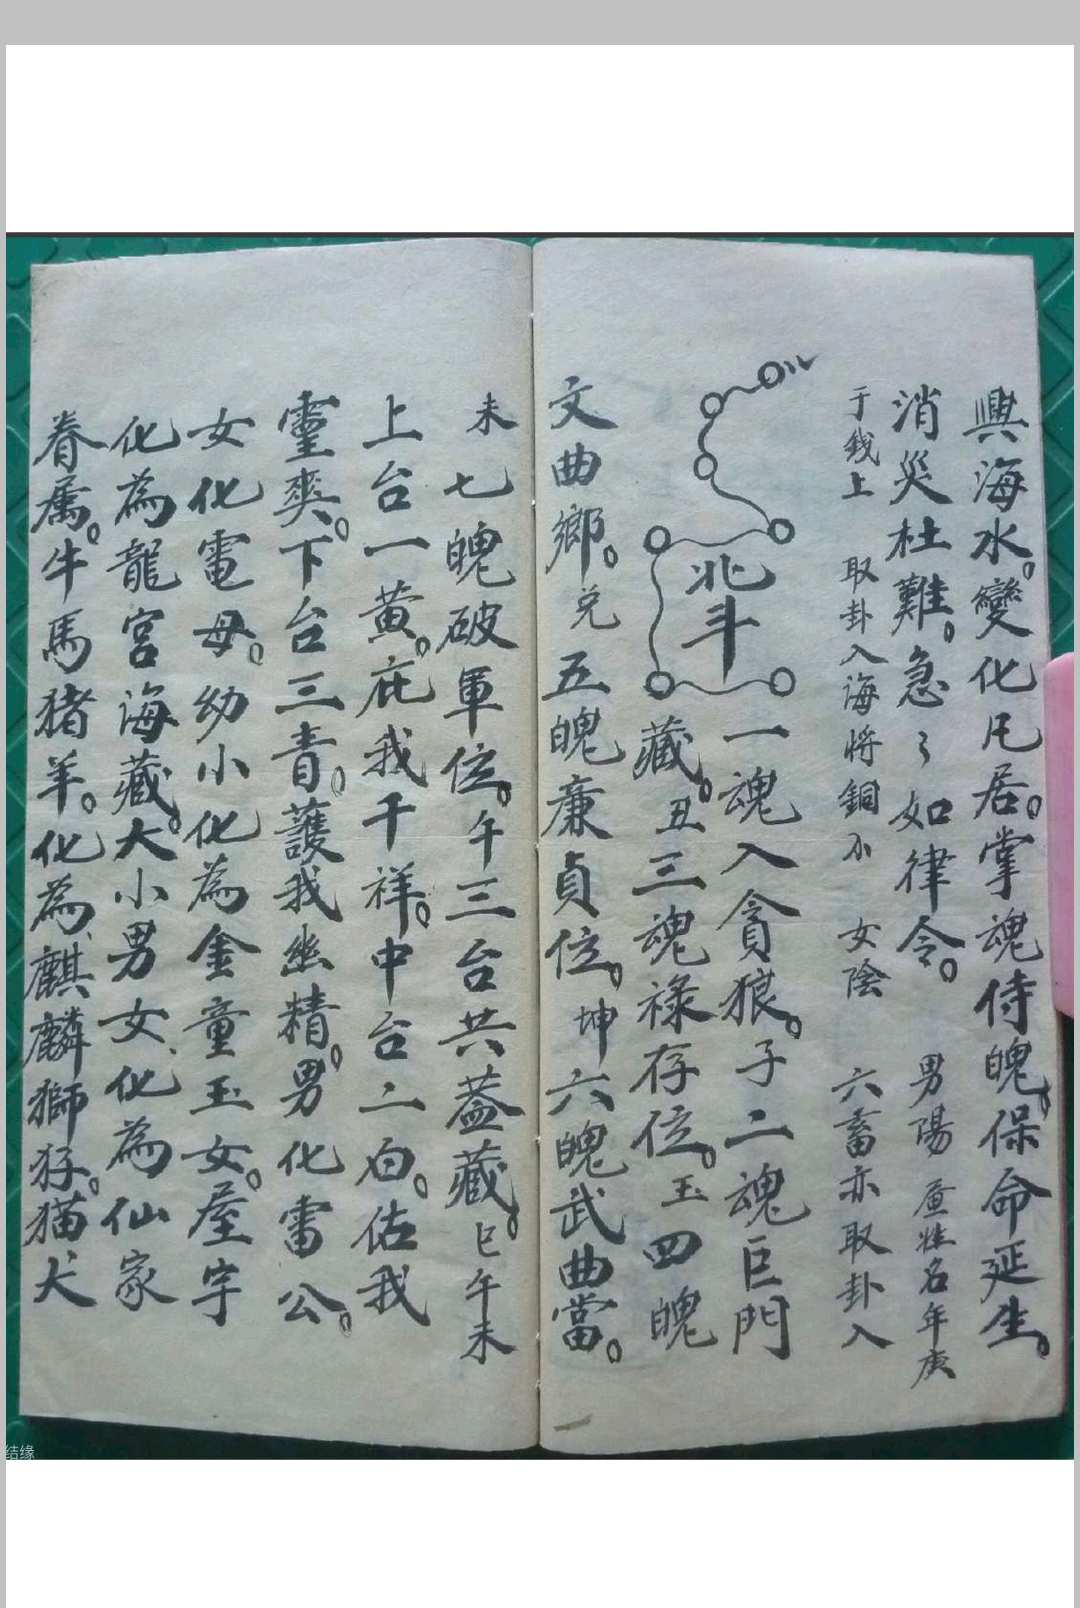 興海水。變化凡居。掌魂侍魄。保命延生。
消災杜難。急々如律令。 男陽  畜牲名年庚
于钱上 取卦入海將銅 女陰 六畜亦取卦入
北斗
一魂入貪狼。子二魂巨門
藏。丑三魂祿存位。玉四魄
文曲鄉。兑五魄亷貞位。坤六魄武曲當。
未七魄破軍位。午三台共葢藏。巳午未
上台一黃。庇我千祥。中台二白。佑我
靈爽。下台三青。護我幽精。男化雷公。
女化電母。幼小化為金童玉女。屋宇
化為龍宮海藏。大小男女化為仙家
眷属。牛馬猪羊。化為麒麟獅㹧。猫犬
结缘